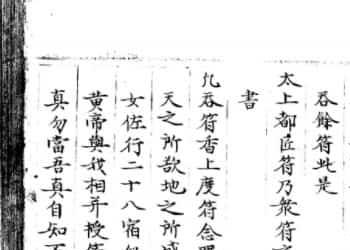 吞餘符此是
太上都匠符乃衆符
書
凡吞符杏上度符念
天之所欲地之所
女佐行二十八宿
黄帝與我相并授
真勿當吾真自知